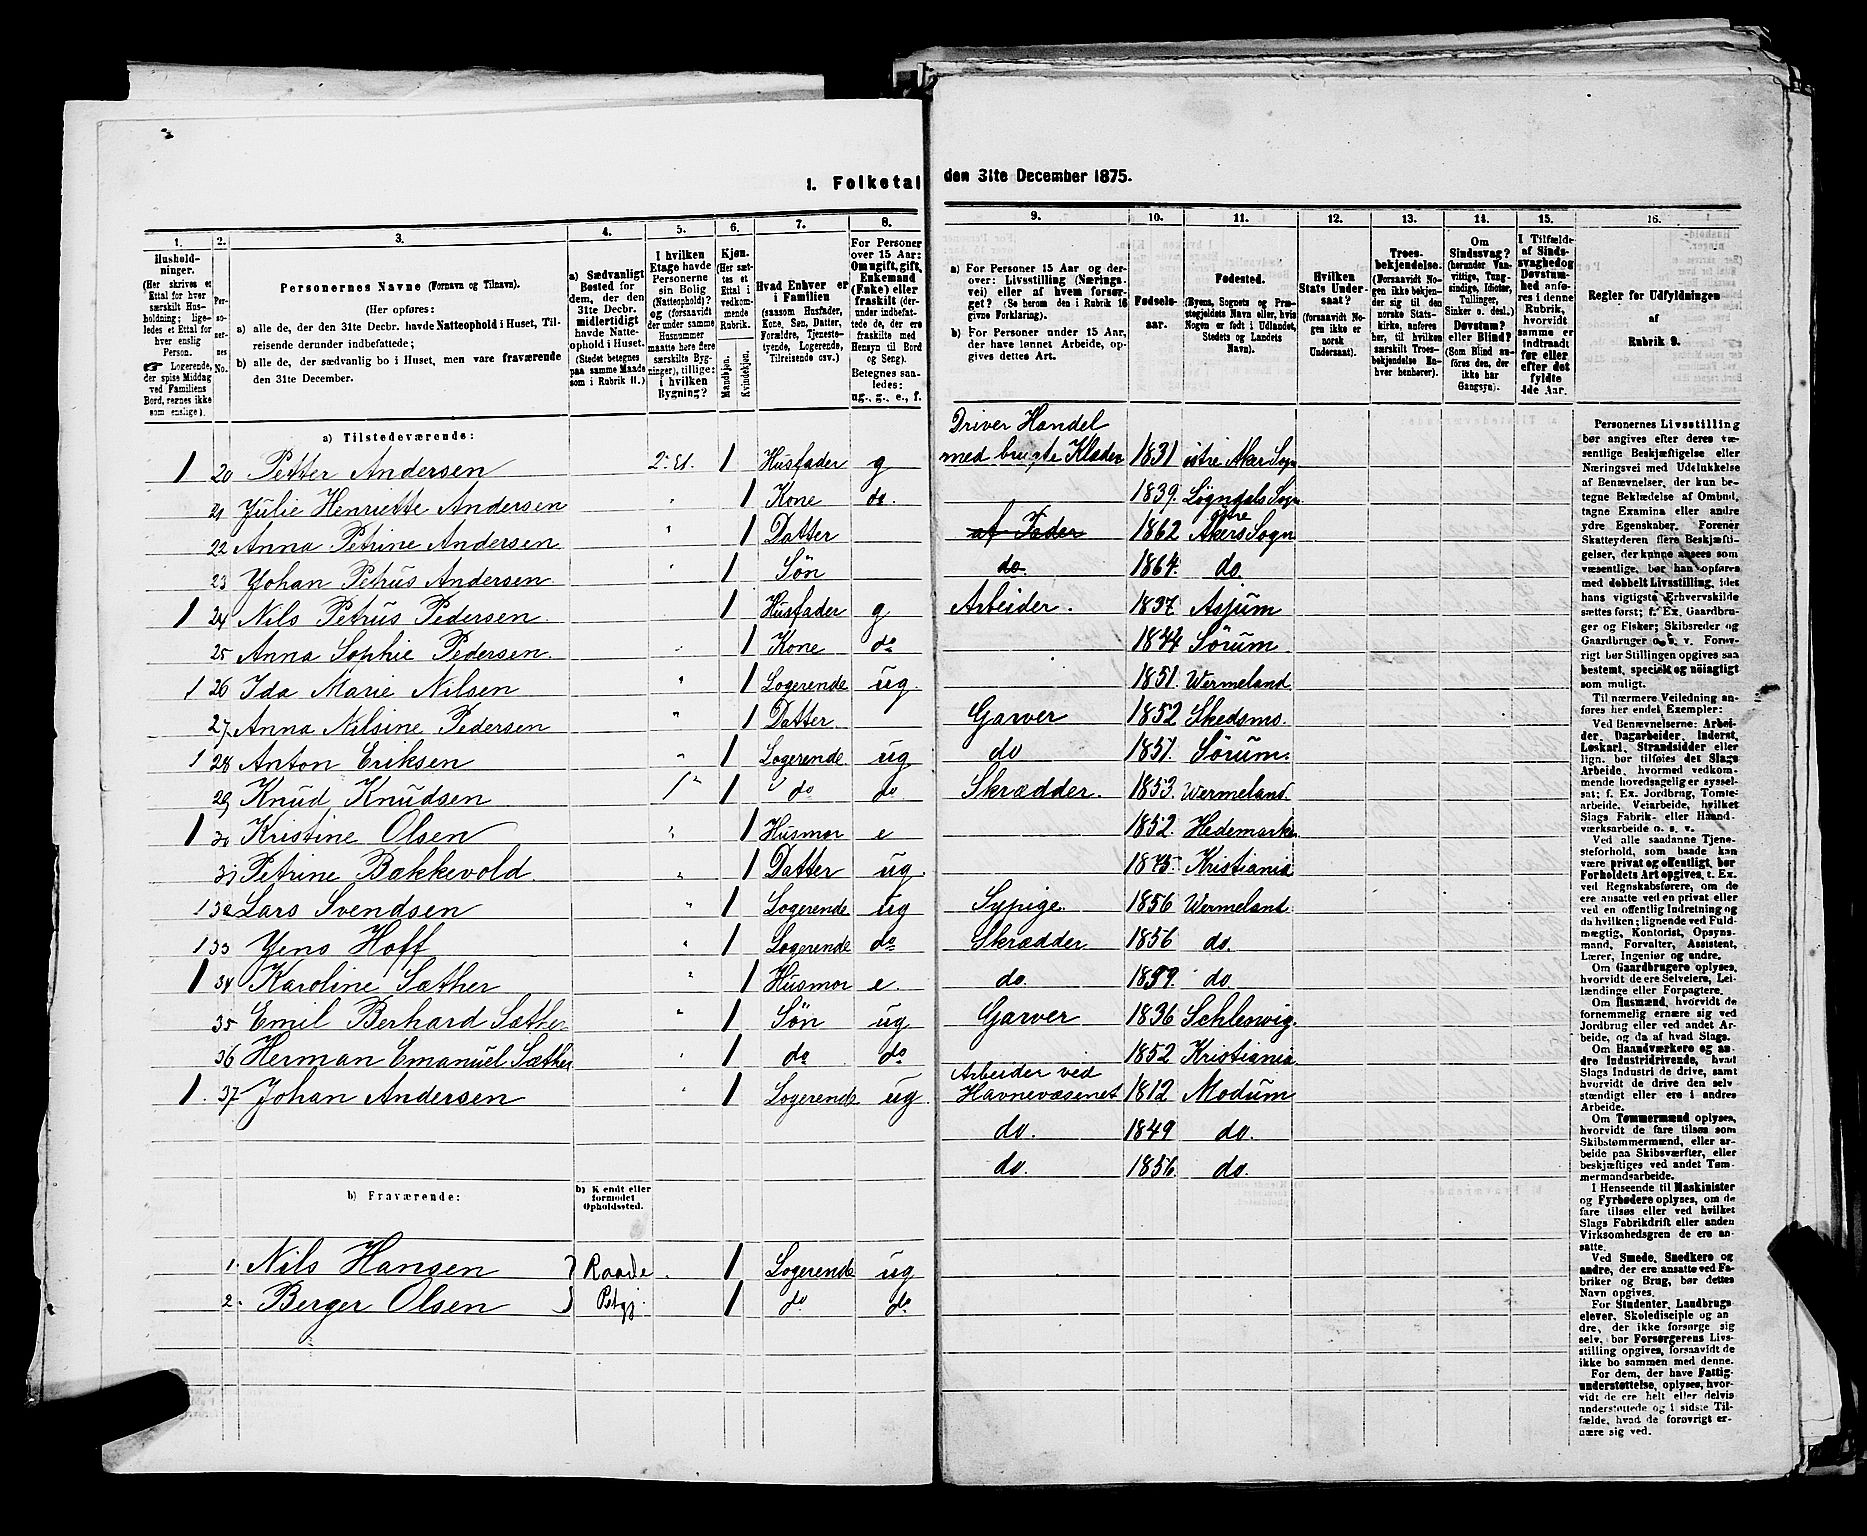 1. Folketal den 31te December 1875.
1. 2. 3. 4. 5. 6. 7. 8. 9. 10. 11. 12. 13. 14. 15. 16.
Husholdninger. (Her skrives et Ettal for hver særskilt Husholdning; ligeledes et Ettal for hver enslig Person. Logerende, der spise Middag ved Familiens Bord, regnes ikke som enslige).
Personernes No.
Personernes Navne (Fornavn og Tilnavn).
(Her opføres:
a) alle de, der den 31te Decbr. havde Natteophold i Huset, Tilreisende derunder indbefattede;
b) alle de, der sædvanlig bo i Huset, men vare fraværende den 31te December.
a) Sædvanligt Bosted for dem, der den 31te Decbr. midlertidigt havde Natteophold i Huset. (Stedet betegnes paa samme Maade som i Rubrik 11.)
I hvilken Etage havde Personen sin Bolig (Natteophold)? og (forsaavidt der under samme Husnummer maatte høre flere særskilte Bygninger), tillige: i hvilken Bygning?
Kjøn. (Her sættes et Ettal i vedkommende Rubrik.
Mandkjøn. Kvindekjøn.
Hvad Enhver er i Familien (saasom Husfader, Kone, Søn, Datter, Forældre, Tjenestetyende, Logerende, Tilreisende osv.)
For Personer over 15 Aar: Om ugift, gift, Enkemand (Enke) eller fraskilt (derunder indbefattede de, der ere fraskilte med Hensyn til Bord og Seng). Betegnes saaledes: ug., g., e., f.
a) For Personer 15 Aar og derover: Livsstilling (Næringsvei) eller af hvem forsørget? (Se herom den i Rubrik 16 givne Forklaring).
b) For Personer under 15 Aar, der have lønnet Arbeide, opgives dettes Art.
Fødselsaar.
Fødested. (Byens, Sognets og Præstegjeldets Navn eller, hvis Nogen er født i Udlandet, Stedets og Landets Navn).
Hvilken Stats Undersaat? (forsaavidt Nogen ikke er norsk Undersaat).
Troesbekjendelse. (Forsaavidt Nogen ikke bekjender sig til den norske Statskirke, anføres her, til hvilken særskilt Troesbekjendelse Enhver henhører).
Om Sindssvag? (herunder Vanvittige, Tungsindige, Idioter, Tullinger, Sinker o. desl.) Døvstum? eller Blind? (Som Blind anføres den, der ikke har Gangsyn).
I Tilfælde af Sindssvaghed og Døvstumhed anføres i denne Rubrik, hvorvidt samme er indtraadt før eller efter det fyldte 4de Aar.
Regler for Udfyldningen af Rubrik 9.
a) Tilstedeværende:
Driver Handel
1 20 Petter Andersen 2. Et. 1 Husfader g med brugte Klæder 1831 østre Aker Sogn
21 Julie Henriette Andersen " 1 Kone do. 1839. Løgndals Sogn
22 Anna Petrine Andersen " 1 Datter af Fader 1862 østre Akers Sogn
23 Johan Petrus Andersen " 1 Søn do. 1864. do.
1 24 Nils Petrus Pedersen. 1 Husfader g Arbeider. 1837 Asjum
25 Anna Sophie Pedersen. " 1 Kone do 1844 Sørum
1 26 Ida Marie Nilsen " 1 Logerende ug. 1851. Wermeland
27 Anna Nilsine Pedersen " 1 Datter Garver 1852 Skedsmo.
1 28 Anton Eriksen " 1 Logerende ug do 1851. Sørum.
29 Knud Knudsen 1 " do do Skrædder. 1853. Wermeland.
1 30 Kristine Olsen " 1 Husmor e 1852. Hedemarken
31 Petrine Bakkevold " 1 Datter ug. 1875. Kristiania
1 32 Lars Svendsen " 1 Logerende ug Sypige. 1856 Wermeland.
1 33 Jens Hoff " 1 Logerende do Skrædder 1856 do.
1 34 Karoline Sæther " 1 Husmor e. do. 1859. do.
35 Emil Berhard Sæther " 1 Søn ug. Garver 1836 Schleswig.
36 Herman Emanuel Sæther " 1 do do 1852 Kristiania
1. 37 Johan Andersen " 1 Logerende ug. Arbeider ved Havnevæsenet 1812 Modum
do. 1849 do.
do. 1856. do.
b) Fraværende:
b) Kjendt eller formodet Opholdssted.
1. Nils Hansen } Raade 1 Logerende ug
2. Berger Olsen } Pstgj. 1 do do
Personernes Livsstilling bør angives efter deres væsentlige Beskjæftigelse eller Næringsvei med Udelukkelse af Benævnelser, der kun betegne Beklædelse af Ombud, tagne Examina eller andre ydre Egenskaber. Forener Skatteyderen flere Beskjæftigelser, der kunne ansees som væsentlige, bør han opføres med dobbelt Livsstilling, idet hans vigtigste Erhvervskilde sættes først; f. Ex. Gaardbruger og Fisker; Skibsreder og Gaardbruger o. s. v. Forøvrigt bør Stillingen opgives saa bestemt, specielt og nøiagtigt som muligt.
Til nærmere Veiledning anføres her endel Exempler:
Ved Benævnelserne: Arbeider, Dagarbeider, Inderst, Løskarl, Strandsidder eller lign. bør tilføies det Slags Arbeide, hvormed vedkommende hovedsagelig er sysselsat; f. Ex. Jordbrug, Tomtearbeide, Veiarbeide, hvilket Slags Fabrik- eller Haandværksarbeide o. s. v.
Ved alle saadanne Tjenesteforhold, som baade kan være privat og offentligt, bør Forholdets Art opgives, t. Ex. ved Regnskabsførere, om de ere ansatte ved en privat eller ved en offentlig Indretning og da hvilken; lignende ved Fuldmægtig, Kontorist, Opsynsmand, Forvalter, Assistent, Lærer, Ingeniør og andre.
Om Gaardbrugere oplyses, hvorvidt de ere Selveiere, Leilændinge eller Forpagtere.
Om Husmænd, hvorvidt de fornemmelig ernære sig ved Jordbrug eller ved andet Arbeide, og da af hvad Slags.
Om Haandværkere og andre Industridrivende, hvad Slags Industri de drive, samt hvorvidt de drive den selvstændigt eller ere i andres Arbeide.
Om Tømmermænd oplyses, hvorvidt de fare tilsøs som Skibstømmermænd, eller arbeide paa Skibsværfter, eller beskjæftiges ved andet Tømmermandsarbeide.
I Henseende til Maskinister og Fyrbødere oplyses, om de fare tilsøs eller ved hvilket Slags Fabrikdrift eller anden Virksomhedsgren de ere ansatte.
Ved Smede, Snedkere og andre, der ere ansatte ved Fabriker og Brug, bør dettes Navn opgives.
For Studenter, Landbrugselever, Skoledisciple og andre, der ikke forsørge sig selv, bør Forsørgerens Livsstilling opgives, forsaavidt de ikke bo sammen med denne.
For dem, der have Fattigunderstøttelse, oplyses, hvorvidt de ere helt eller delvis understøttede og i sidste Tilfælde, hvad de forøvrigt ernære sig ved.